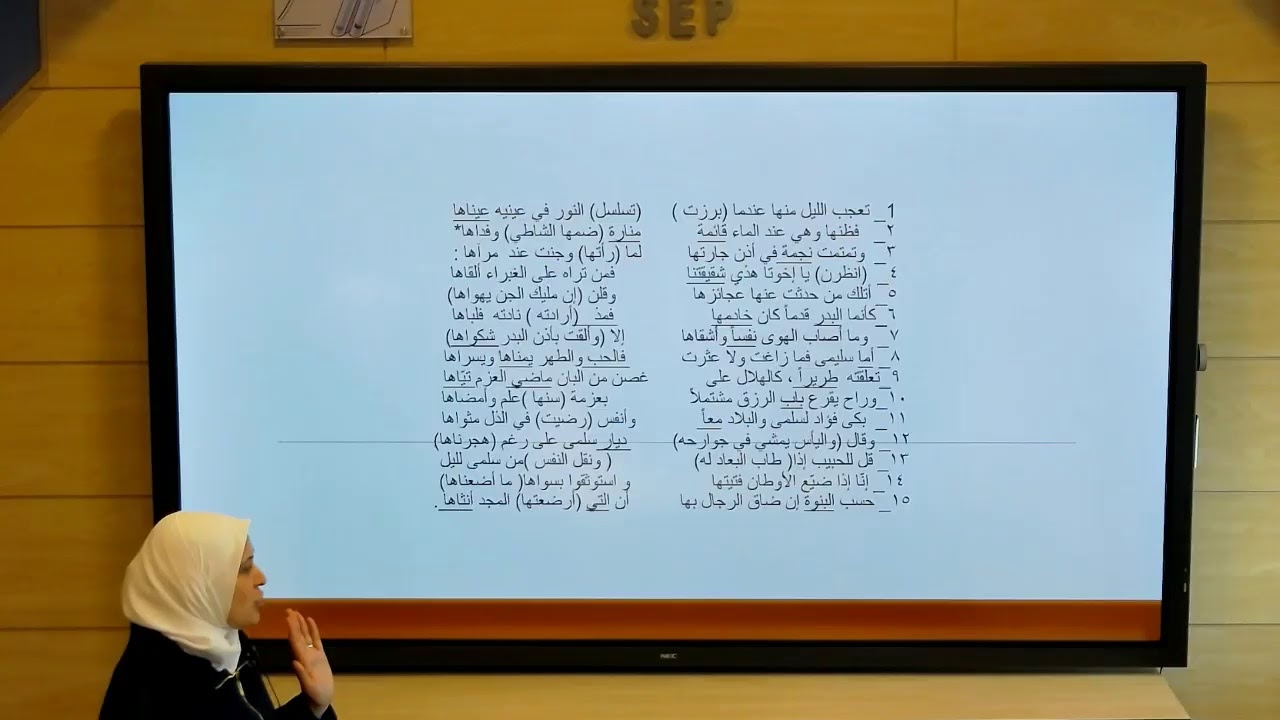 SEP
1_ تعجب الليل منها عندما (برزت ) (تسلسل) النور في عينيه عيناها
٢_ فظنها وهي عند الماء قائمة منارة (ضمها الشاطي) وفداها*
٣_ وتمتمت نجمة في أذن جارتها لما (رأتها) وجنت عند مرآها :
٤_ (انظرن) يا إخوتا هذي شقيقتنا فمن تراه على الغبراء ألقاها
٥_ أتلك من حدثت عنها عجائزها وقلن (إن مليك الجن يهواها)
٦_ كأنما البدر قدماً كان خادمها فمذ (أرادته ) نادته فلباها
٧_ وما أصاب الهوى نفساً وأشقاها إلا (وألقت بأذن البدر شكواها)
٨_ أما سليمى فما زاغت ولا عثرت فالحب والطهر يمناها ويسراها
٩_ تعلقته طريراً ، كالهلال على غصن من البان ماضي العزم تيّاها
١٠_ وراح يقرع باب الرزق مشتملاً بعزمة (سنها )علم وأمضاها
١١_ بكى فؤاد لسلمى والبلاد معاً وأنفس (رضيت) في الذل مثواها
١٢_ وقال (واليأس يمشي في جوارحه) ديار سلمى على رغم (هجرناها)
١٣_ قل للحبيب إذا( طاب البعاد له) ( ونقل النفس )من سلمى لليل
١٤_ إنّا إذا ضيّع الأوطان فتيتها و استوثقوا بسواها( ما أضعناها)
١٥_ حسب البنوة إن ضاق الرجال بها أن التي (أرضعتها) المجد أنثاها.
NEC